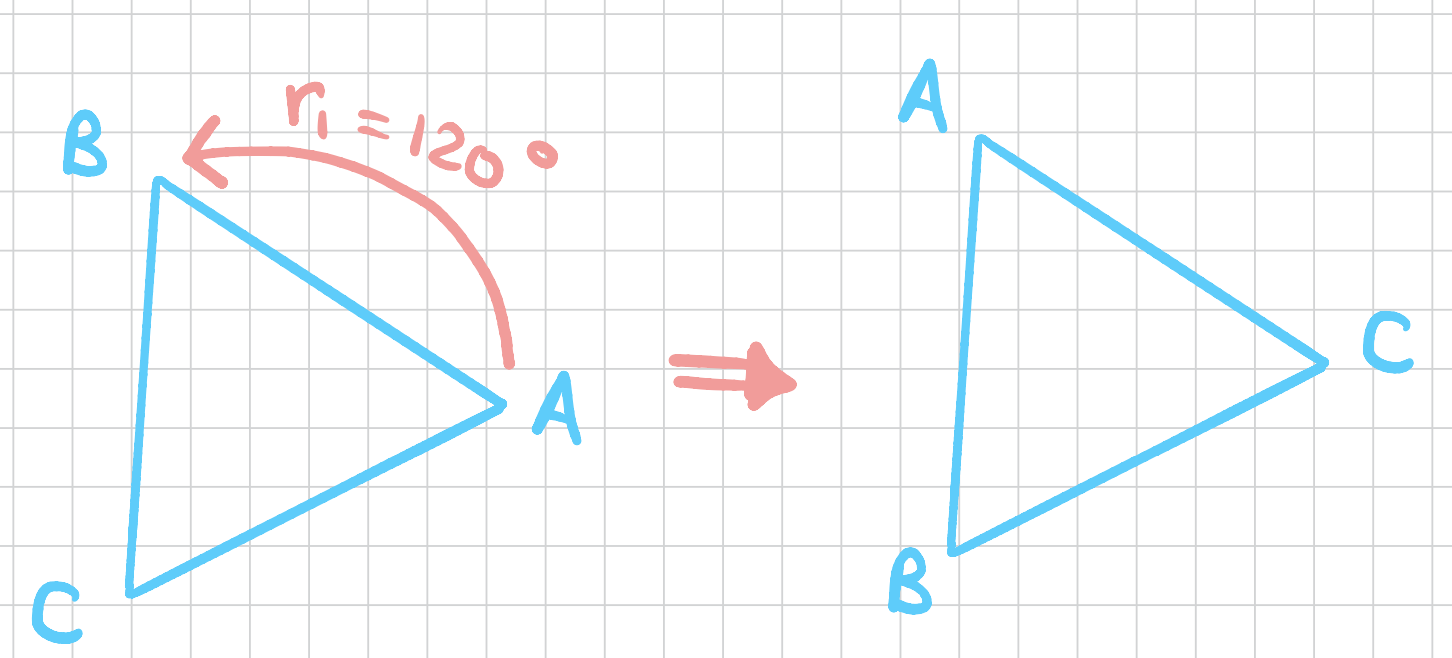 B
r₁ = 120°
A
C
A
C
B